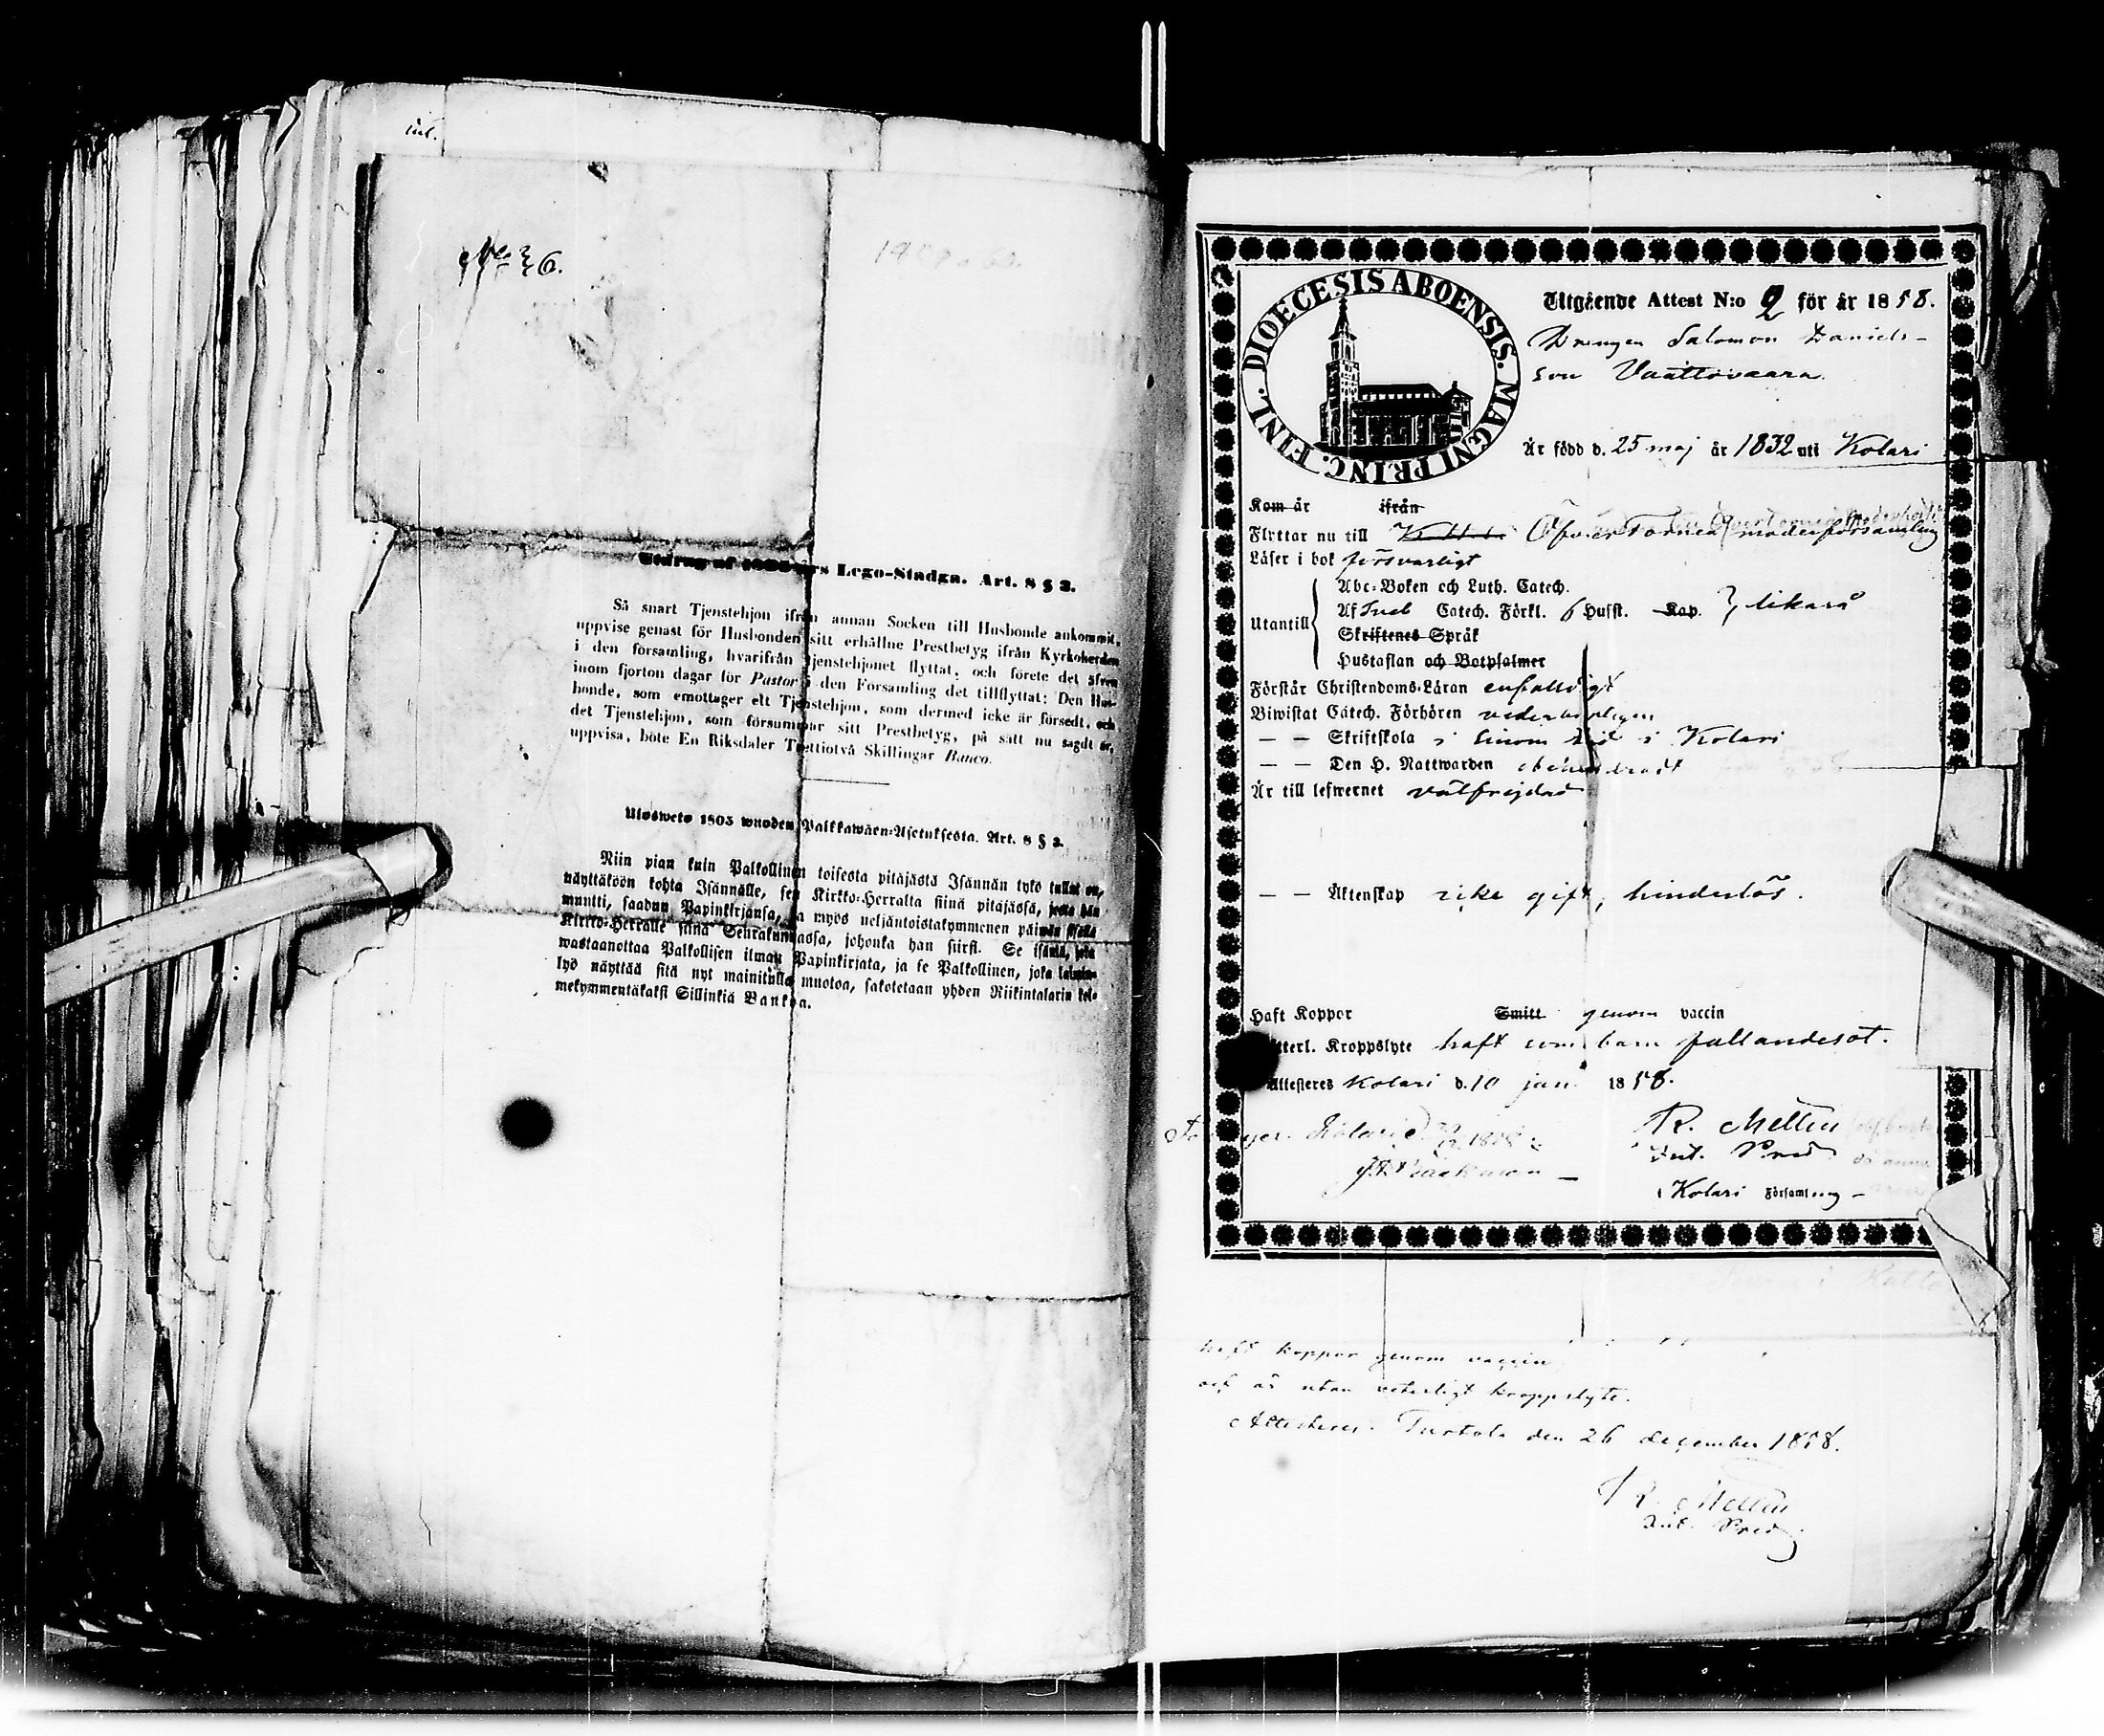 int.
No 36.
Utdrag af 1805 års Lego-Stadga. Art. 8 § 2.
Så snart Tjenstehjon ifrån annan Socken till Husbonde ankommit,
uppvise genast för Husbonden sitt erhållne Prestbetyg ifrån Kyrkoherden
i den församling, hvarifrån tjenstehjonet flyttat, och förete det äfven
inom fjorton dagar för Pastor i den Församling det tillflyttat: Den Hus-
bonde, som emottager ett Tjenstehjon, som dermed icke är försedt, och
det Tjenstehjon, som försummar sitt Prestbetyg, på sätt nu sagdt är,
uppvisa, böte En Riksdaler Trettiotvå Skillingar Banco.
Ulosweto 1805 wuoden Palkkawäen-Asetuksesta. Art. 8 § 2.
Niin pian kuin Palkollinen toisesta pitäjästä Isännän tykö tullut on,
näyttäköön kohta Isännälle, sen Kirkko-Herralta siinä pitäjässä, josta hän
muutti, saadun Papinkirjansa, ja myös neljäntoistakymmenen päiwän sisällä
Kirkko-Herralle siinä Seurakunnassa, johonka hän siirsi. Se isäntä, joka
wastaanottaa Palkollisen ilman Papinkirjata, ja se Palkollinen, joka laimin-
lyö näyttää sitä nyt mainitulla muotoa, sakotetaan yhden Riikintalarin kol-
mekymmentäkaksi Sillinkiä Bankoa.
FINL. DIOECESIS ABOENSIS. MAGNI PRINC.
Utgående Attest N:o 2 för år 1858.
Drengen Salomon Daniels-
son Vaattovaara.
Är född d. 25 maj år 1832 uti Kolari
Kom år ifrån
Flyttar nu till Öfver Torneå moderförsamling
Läser i bok försvarligt
Abc-Boken och Luth. Catech.
Utantill Af Sveb Catech. Förkl. 6 Hufst. Kap. } likaså
Skriftenes Språk
Hustaflan och Botpsalmer
Förstår Christendoms-Läran enfaldigt
Biwistat Catech. Förhören vederbörligen
— — Skriftskola i sinom tid i Kolari
— — Den H. Nattwarden obehindradt
Är till lefwernet välfrejdad
— — Äktenskap icke gift, hinderlös.
Haft Koppor Smitt genom vaccin
Wetterl. Kroppslyte haft som barn fallandesot.
Attesteras Kolari d. 10 jan. 1858.
R. Mellin
Int. Pred.
Kolari Församling
haft koppor genom vaccin
och är utan veterligt kroppslyte.
Attesteras. Turtola den 26 december 1858.
R. Mellin
Int. Pred.